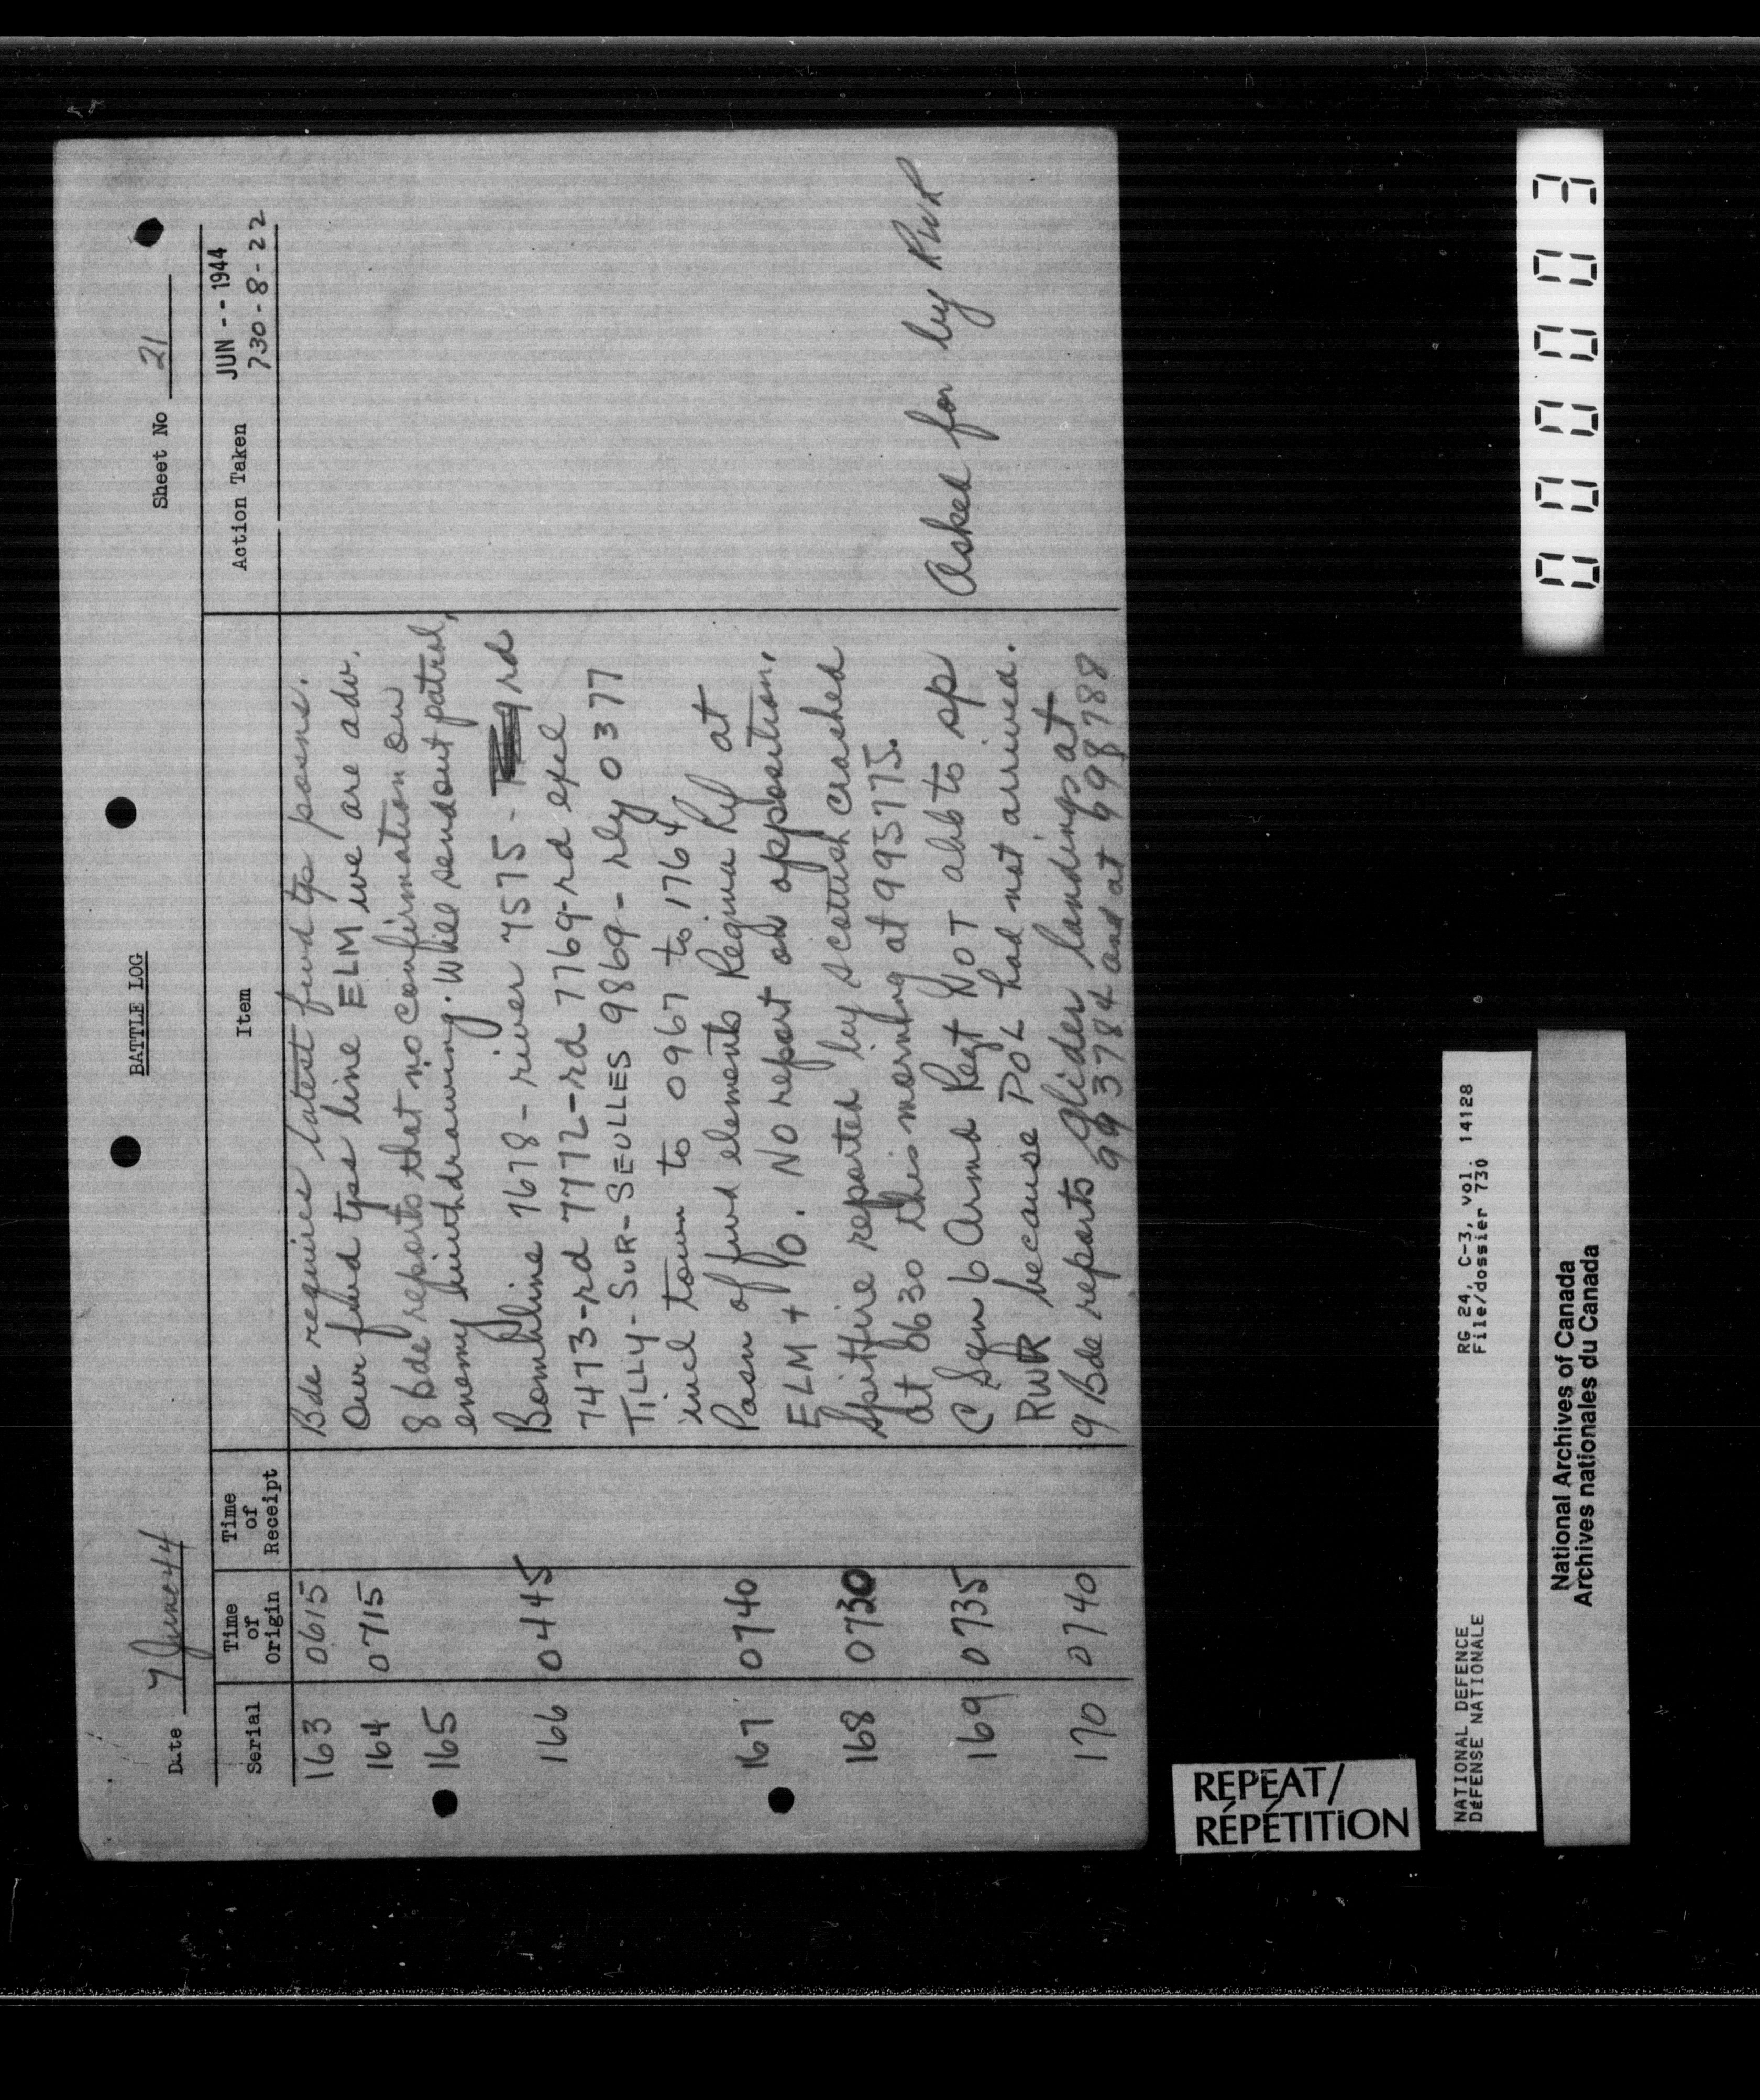 BATTLE LOG
Date 7 June 44
Sheet No 21
Serial
Time of Origin
Time of Receipt
Item
Action Taken
JUN -- 1944
730-8-22
163 0615 Bde requires latest fwd tps posns.
164 0715 Our fwd tps line ELM we are adv.
165 8 bde reports that no confirmation on
enemy withdrawing. Will send out patrol,
166 0445 Bombline 7678 - river 7575 - rd
7473 - rd 7772 - rd 7769 - rd excl
TILLY-SUR-SEULLES 9869 - rly 0377
incl town to 0967 to 1764
167 0740 Posn of fwd elements Regina Rif at
ELM + 40. NO report on opposition.
168 0730 Spitfire reported by scottish crashed
at 0630 this morning at 995775.
169 0735 C Sqn 6 Armd Regt NOT able to sp Asked for by RWR
RWR because POL had not arrived.
170 0740 9 Bde reports glider landings at
993784 and at 998788
REPEAT/
RÉPÉTITION
NATIONAL DEFENCE
DÉFENSE NATIONALE
RG 24, C-3, vol. 14128
File/dossier 730
National Archives of Canada
Archives nationales du Canada
000003